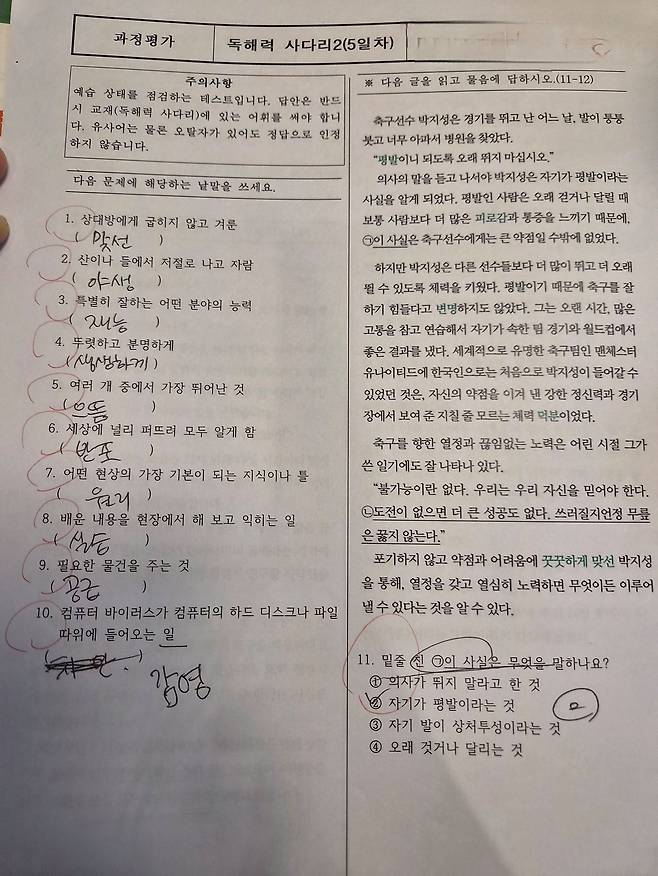 과정평가
독해력 사다리2(5일차)
주의사항
예습 상태를 점검하는 테스트입니다. 답안은 반드
시 교재(독해력 사다리)에 있는 어휘를 써야 합니
다. 유사어는 물론 오탈자가 있어도 정답으로 인정
하지 않습니다.
다음 문제에 해당하는 낱말을 쓰세요.
1. 상대방에게 굽히지 않고 겨룬
( 맞선 )
2. 산이나 들에서 저절로 나고 자람
( 야생 )
3. 특별히 잘하는 어떤 분야의 능력
( 재능 )
4. 뚜렷하고 분명하게
( 생생하게 )
5. 여러 개 중에서 가장 뛰어난 것
( 으뜸 )
6. 세상에 널리 퍼뜨려 모두 알게 함
( 반포 )
7. 어떤 현상의 가장 기본이 되는 지식이나 틀
( 원리 )
8. 배운 내용을 현장에서 해 보고 익히는 일
( )
9. 필요한 물건을 주는 것
( 공근 )
10. 컴퓨터 바이러스가 컴퓨터의 하드 디스크나 파일
따위에 들어오는 일
( ) 감영
※ 다음 글을 읽고 물음에 답하시오.(11-12)
축구선수 박지성은 경기를 뛰고 난 어느 날, 발이 퉁퉁
붓고 너무 아파서 병원을 찾았다.
“평발이니 되도록 오래 뛰지 마십시오.”
의사의 말을 듣고 나서야 박지성은 자기가 평발이라는
사실을 알게 되었다. 평발인 사람은 오래 걷거나 달릴 때
보통 사람보다 더 많은 피로감과 통증을 느끼기 때문에,
㉠이 사실은 축구선수에게는 큰 약점일 수밖에 없었다.
하지만 박지성은 다른 선수들보다 더 많이 뛰고 더 오래
뛸 수 있도록 체력을 키웠다. 평발이기 때문에 축구를 잘
하기 힘들다고 변명하지도 않았다. 그는 오랜 시간, 많은
고통을 참고 연습해서 자기가 속한 팀 경기와 월드컵에서
좋은 결과를 냈다. 세계적으로 유명한 축구팀인 맨체스터
유나이티드에 한국인으로는 처음으로 박지성이 들어갈 수
있었던 것은, 자신의 약점을 이겨 낸 강한 정신력과 경기
장에서 보여 준 지칠 줄 모르는 체력 덕분이었다.
축구를 향한 열정과 끊임없는 노력은 어린 시절 그가
쓴 일기에도 잘 나타나 있다.
“불가능이란 없다. 우리는 우리 자신을 믿어야 한다.
㉡도전이 없으면 더 큰 성공도 없다. 쓰러질지언정 무릎
은 꿇지 않는다.”
포기하지 않고 약점과 어려움에 꿋꿋하게 맞선 박지성
을 통해, 열정을 갖고 열심히 노력하면 무엇이든 이루어
낼 수 있다는 것을 알 수 있다.
11. 밑줄 친 ㉠이 사실은 무엇을 말하나요?
① 의사가 뛰지 말라고 한 것
② 자기가 평발이라는 것
2
③ 자기 발이 상처투성이라는 것
④ 오래 걷거나 달리는 것